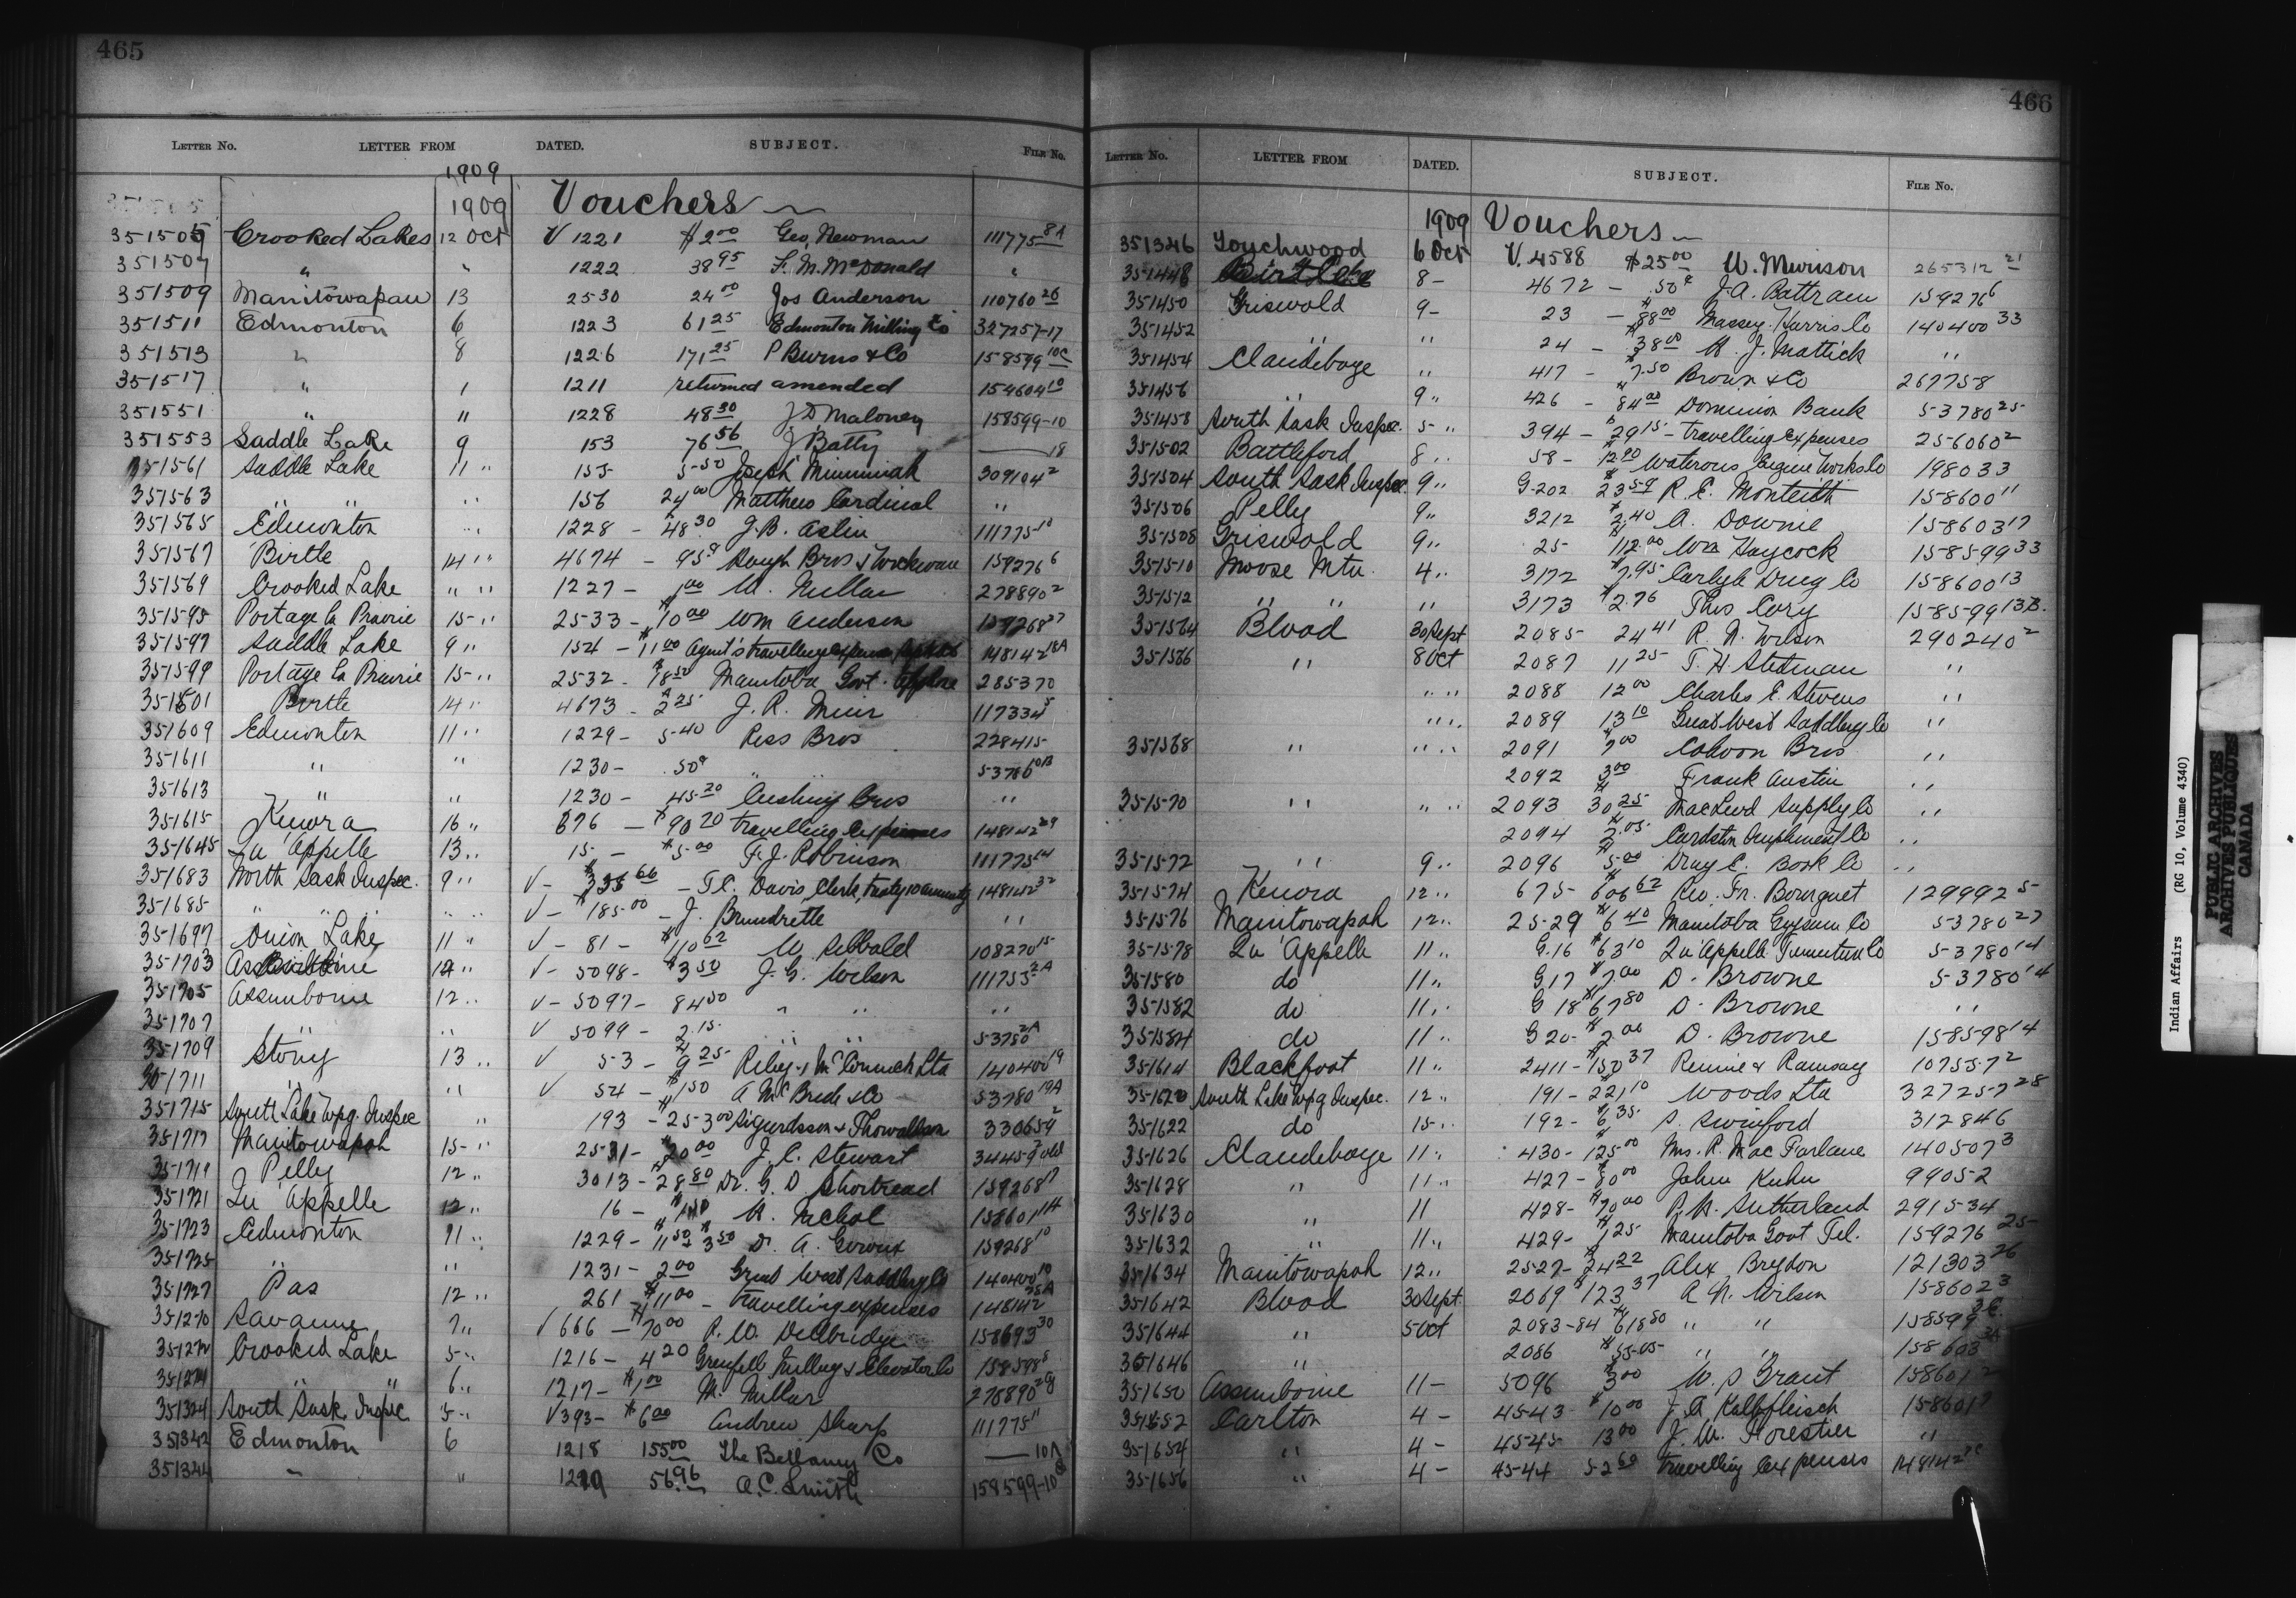 465
LETTER NO. LETTER FROM DATED. SUBJECT. FILE NO.
1909
1909 Vouchers
351505 Crooked Lakes 12 Oct V 1221 $2.00 Geo. Newman 111775 8A
351507 " " 1222 38 95 F. M. McDonald "
351509 Manitowapau 13 2530 24 00 Jos Anderson 110760 26
351511 Edmonton 6 1223 61 25 Edmonton Milling Co 327257-17
351513 " 8 1226 171 25 P Burns & Co 158599 10C
351517 " 1 1211 returned amended 154604 10
351551 " " 1228 48 30 J D Maloney 158599-10
351553 Saddle Lake 9 153 76 56 J Batty 18
351561 Saddle Lake 11 " 155 5-50 Joseph 309104 2
351563 " " " 156 24 00 Matthew Cardinal "
351565 Edmonton " 1228 - 48 30 J.B. Aslin 111775 10
351567 Birtle 14 " 4674 - 95 159276 6
351569 Crooked Lake " " 1227 - 1 00 278890 2
351595 Portage la Prairie 15 " 2533 - $10 00 Wm Anderson 159268 27
351597 Saddle Lake 9 " 154 - $11 00 Agent's travelling expenses 148142 18A
351599 Portage la Prairie 15 " 2532 - $18 50 Manitoba Govt. 285370
351601 Birtle 14 " 4673 - 2 25 J. R. Muir 117334 5
351609 Edmonton 11 " 1229 - 5-40 Ross Bros 228415
351611 " " 1230 - .50 " " 53780 10B
351613 " " 1230 - 45 20 Cushing Bros "
351615 Kenora 16 " 676 - $90 70 travelling expenses 148142 29
351645 Qu'Appelle 13 " 15 - $5 00 F. J. Robinson 111775 14
351683 North Sask Inspec. 9 " V - 66 - T.C. Davis, Clerk, 148142 32
351685 " " " V - $185 00 - J. Brundrette "
351697 Onion Lake 11 " V - 81 - $110 62 W Sibbald 108270 15
351703 12 " V - 5098 - $3 50 J. G. Wilson 111755 2A
351705 Assiniboine 12 " V - 5097 - 84 50 " " "
351707 " " V 5099 - 2 15 " " 53780 2A
351709 Stony 13 " V 53 - 9 25 Riley & McCormick Ltd 140400 19
351711 " " V 54 - $1 50 A McBride & Co 53780 19A
351715 South Lake Wpg. Inspec " 193 - 25-3 00 Sigurdsson & Thorwaldson 330659 2
351717 Manitowapah 15 " 2531 - $20 00 J. C. Stewart
351719 Pelly 12 " 3013 - 28 80 Dr. G. D Shortread 159268 17
351721 Qu'Appelle 12 " 16 - A. Nichol 158601 14
351723 Edmonton 11 " 1229 - 11 50 & 3 50 Dr. A. Giroux 159268 10
351725 " " 1231 - 2 00 Great West Saddlery Co 140400 10
351727 Pas 12 " 261 - $11 00 - travelling expenses 148142 28A
351270 Savanne 7 " V 666 - $70 00 R. W. Dellbridge 158693 30
351272 Crooked Lake 5 " 1216 - 4 20 Grenfell Milling & Elevator Co 158598 8
351274 " " 6 " 1217 - $1 00 M. Millar 278890
351324 South Sask. Inspec 5 " V 393 - $6 00 Andrew Sharp 111775 11
351342 Edmonton 6 1218 155 00 The Bellamy Co 10A
351344 " " 1219 56.96 A.C. Smith 158599-10
466
LETTER NO. LETTER FROM DATED. SUBJECT. FILE NO.
1909 Vouchers
351346 Touchwood 6 Oct V. 4588 $25 00 W. Murison 265312 21
351448 8 - 4672 - .50 J.A. Battram 159276 6
351450 Griswold 9 - 23 - $88 00 Massey-Harris Co 140400 33
351452 " " 24 - $38 00 J. Mattick "
351454 Clandeboye " 417 - 7.50 Brown & Co 267758
351456 " 9 " 426 - $84 00 Dominion Bank 53780 25
351458 South Sask Inspec. 5 " 394 - $29 15 - travelling expenses 256060 2
351502 Battleford 8 " 58 - 12 90 Waterous Engine Works Co 198033
351504 South Sask Inspec. 9 " G. 202 R. C. Monteith 158600 11
351506 Pelly 9 " 3212 $2.40 A. Downie 158603 17
351508 Griswold 9 " 25 - 112.00 Wm Haycock 158599 33
351510 Moose Mtn 4 " 3172 $7.95 Carlyle Drug Co 158600 13
351512 " " " 3173 $2.76 Thos Cory 158599 13B.
351564 Blood 30 Sept 2085 24 41 R. N. Wilson 290240 2
351566 " 8 Oct 2087 11 25 T. H. Stedman "
" " 2088 12 00 Charles E. Stevens "
" " 2089 13 10 Great West Saddlery Co "
351568 " " " 2091 7 00 Cahoon Bros "
2092 3 00 Frank Austin "
351570 " " " 2093 30 25 MacLeod Supply Co "
2094 2.05 Cardston Implement Co "
351572 " 9 " 2096 5 00 Drug & Book Co "
351574 Kenora 12 " 675 - 606 62 Rev. Fr. Bourguet 129992 5
351576 Manitowapah 12 " 2529 $6 40 Manitoba Gypsum Co 53780 27
351578 Qu'Appelle 11 " G. 16 $63 10 Qu'Appelle Furniture Co 53780 14
351580 do 11 " G 17 $7.00 D. Browne 53780 14
351582 do 11 " G 18 $67 80 D. Browne "
351584 do 11 " G 20 - $2 00 D. Browne 158598 14
351614 Blackfoot 11 " 2411 - $150 37 Rennie & Ramsay 107557 2
351620 South Lake Wpg Inspec. 12 " 191 - 221 10 Woods Ltd 327257 28
351622 do 15 " 192 - 6 35 S. Swinford 312846
351626 Clandeboye 11 " 430 - 125 00 Mrs. R. MacFarlane 140507 3
351628 " 11 " 427 - $80 00 John Kuhn 99052
351630 " 11 428 - $70 00 R. H. Sutherland 291534
351632 " 11 " 429 - $1 25 Manitoba Govt Tel. 159276 25
351634 Manitowapah 12 " 2527 - $24 22 Alex Breydon 121303 26
351642 Blood 30 Sept. 2069 $123 37 R. N. Wilson 158602 3
351644 " 5 Oct 2083-84 $618 50 " " 158599
351646 " 2086 $55.05 " " 158603
351650 Assiniboine 11 - 5096 3 00 W. S Grant 158601 2
351652 Carlton 4 - 4543 $10 00 J. A. Kalbfleisch 158601
351654 " 4 - 4545 13 00 J. W. Forestier "
351656 " 4 - 4544 52 60 travelling expenses 148142
Indian Affairs (RG 10, Volume 4340)
PUBLIC ARCHIVES
ARCHIVES PUBLIQUES
CANADA